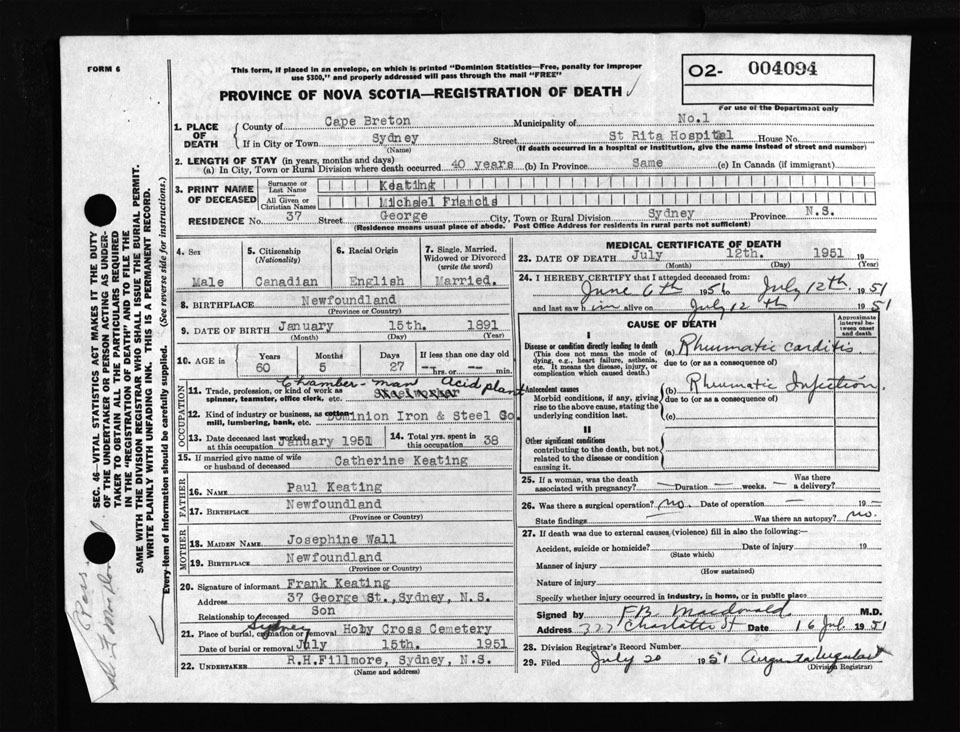 FORM 6
This form, if placed in an envelope, on which is printed "Dominion Statistics—Free, penalty for improper
use $300," and properly addressed will pass through the mail "FREE"
O2- 004094
For use of the Department only
PROVINCE OF NOVA SCOTIA—REGISTRATION OF DEATH
1. PLACE OF DEATH County of Cape Breton Municipality of No.1
If in City or Town Sydney Street St Rita Hospital House No.
(Name) (If death occurred in a hospital or institution, give the name instead of street and number)
2. LENGTH OF STAY (in years, months and days)
(a) In City, Town or Rural Division where death occurred 40 years (b) In Province Same (c) In Canada (if immigrant)
3. PRINT NAME OF DECEASED Surname or Last Name Keating
All Given or Christian Names Michael Francis
RESIDENCE No. 37 Street George City, Town or Rural Division Sydney Province N.S.
(Residence means usual place of abode. Post Office Address for residents in rural parts not sufficient)
4. Sex Male
5. Citizenship (Nationality) Canadian
6. Racial Origin English
7. Single, Married, Widowed or Divorced (write the word) Married.
8. BIRTHPLACE Newfoundland
(Province or Country)
9. DATE OF BIRTH January 15th. 1891
(Month) (Day) (Year)
10. AGE in Years 60 Months 5 Days 27 If less than one day old -- hrs. or -- min.
Chamber-man Acid plant
11. Trade, profession or kind of work as spinner, teamster, office clerk, etc.
12. Kind of industry or business, as cotton mill, lumbering, bank, etc. Dominion Iron & Steel Co.
13. Date deceased last worked at this occupation January 1951
14. Total yrs. spent in this occupation 38
OCCUPATION
15. If married give name of wife or husband of deceased Catherine Keating
FATHER
16. NAME Paul Keating
17. BIRTHPLACE Newfoundland
(Province or Country)
MOTHER
18. MAIDEN NAME Josephine Wall
19. BIRTHPLACE Newfoundland
(Province or Country)
20. Signature of informant Frank Keating
Address 37 George St.,Sydney, N.S.
Relationship to deceased Son
Sydney
21. Place of burial, cremation or removal Holy Cross Cemetery
Date of burial or removal July 15th. 1951
22. UNDERTAKER R.H.Fillmore, Sydney, N.S.
(Name and address)
MEDICAL CERTIFICATE OF DEATH
23. DATE OF DEATH July 12th. 1951 19
(Month) (Day) (Year)
24. I HEREBY CERTIFY that I attended deceased from:
June 6th 1951 to July 12th, 1951
and last saw him alive on July 12th 1951
CAUSE OF DEATH
Approximate interval between onset and death
I
Disease or condition directly leading to death
(This does not mean the mode of dying, e.g., heart failure, asthenia, etc. It means the disease, injury, or complication which caused death.)
(a) Rheumatic carditis.
due to (or as a consequence of)
Antecedent causes
Morbid conditions, if any, giving rise to the above cause, stating the underlying condition last.
(b) Rheumatic Infection.
due to (or as a consequence of)
(c)
II
Other significant conditions
contributing to the death, but not related to the disease or condition causing it.
25. If a woman, was the death associated with pregnancy? — Duration — weeks. — Was there a delivery?
26. Was there a surgical operation? no. Date of operation — 19 —
State findings — Was there an autopsy? no.
27. If death was due to external causes (violence) fill in also the following:—
Accident, suicide or homicide? Date of injury 19
(State which)
Manner of injury
(How sustained)
Nature of injury
Specify whether injury occurred in industry, in home, or in public place
Signed by F.B. Macdonald M.D.
Address 377 Charlotte St Date 16 Jul. 1951
28. Division Registrar's Record Number
29. Filed July 20 1951
(Division Registrar)
SEC. 46—VITAL STATISTICS ACT MAKES IT THE DUTY
OF THE UNDERTAKER OR PERSON ACTING AS UNDER-
TAKER TO OBTAIN ALL THE PARTICULARS REQUIRED
IN THE "REGISTRATION OF DEATH" AND TO FILE THE
SAME WITH THE DIVISION REGISTRAR WHO SHALL ISSUE THE BURIAL PERMIT.
WRITE PLAINLY WITH UNFADING INK. THIS IS A PERMANENT RECORD.
Every item of information should be carefully supplied. (See reverse side for instructions.)